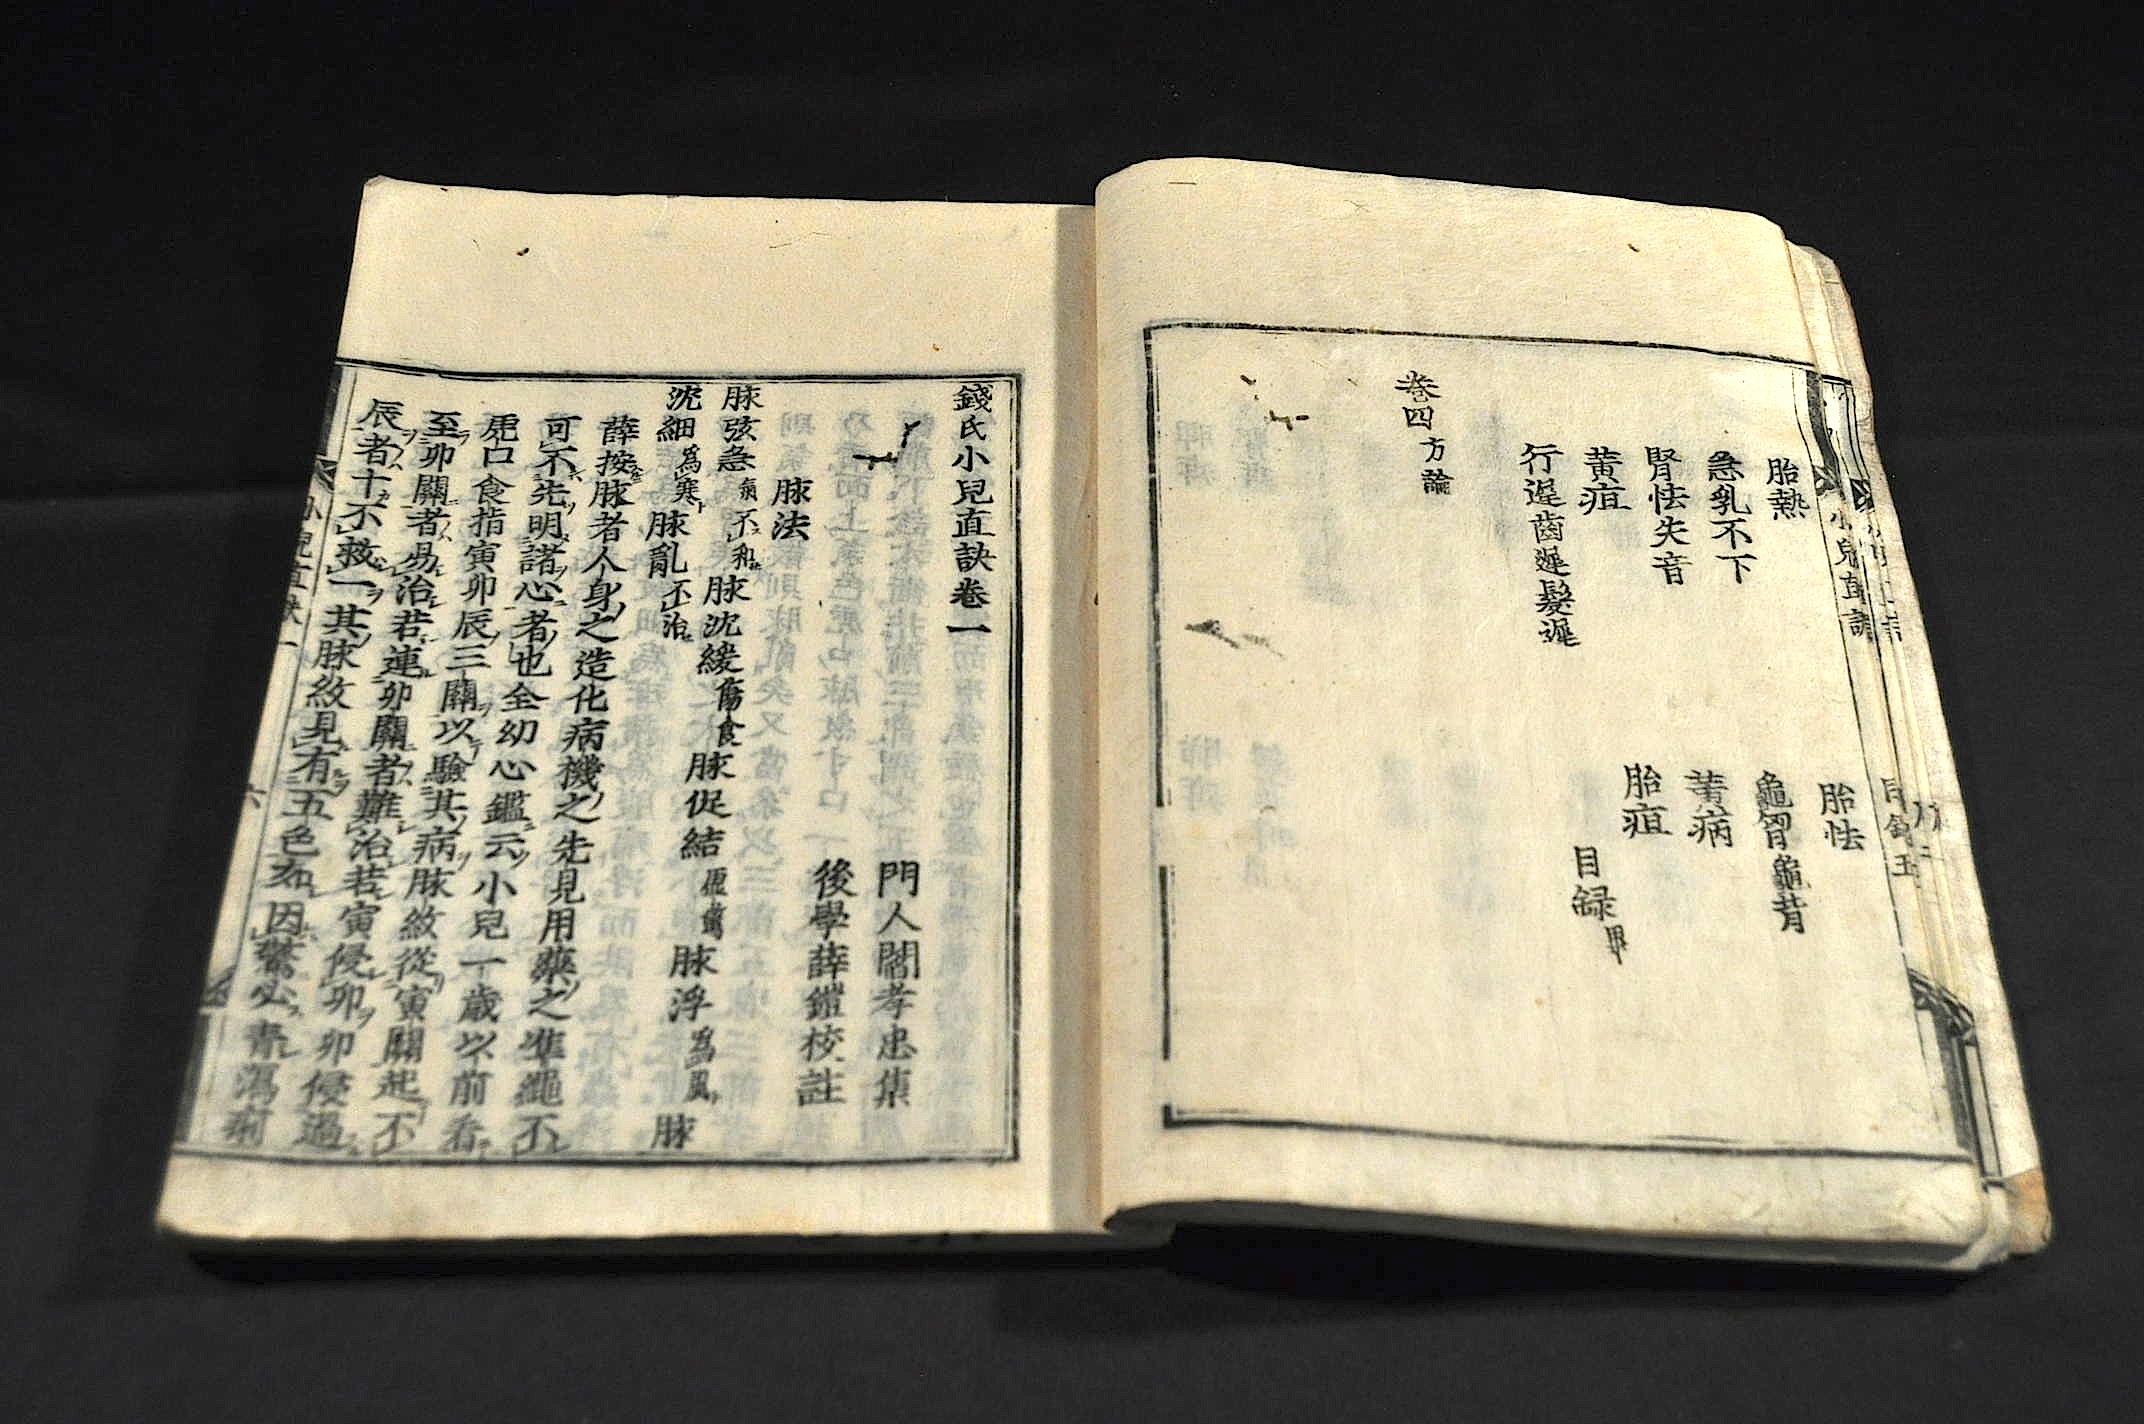 胎熱 胎怯
急乳不下 龜胷龜背
腎怯失音 䔍病
黃疸 胎疸
行遲齒遲髮遲
目録畢
卷四方論
錢氏小兒直訣卷一
門人閻孝忠集
後學薛鎧校註
脉法
脉弦急氣不和脉沈緩傷食脉促結虛驚脉浮爲風脉
沈細爲寒脉亂不治
薛按脉者人身之造化病機之先見用藥之準繩不
可不先明諸心者也全幼心鑑云小兒一歲以前看
虎口食指寅卯辰三關以驗其病脉紋從寅關起不
至卯關者易治若連卯關者難治若寅侵卯卯侵過
辰者十不救一其脉紋見有五色如因驚必青瀉痢
小兒直訣一
六